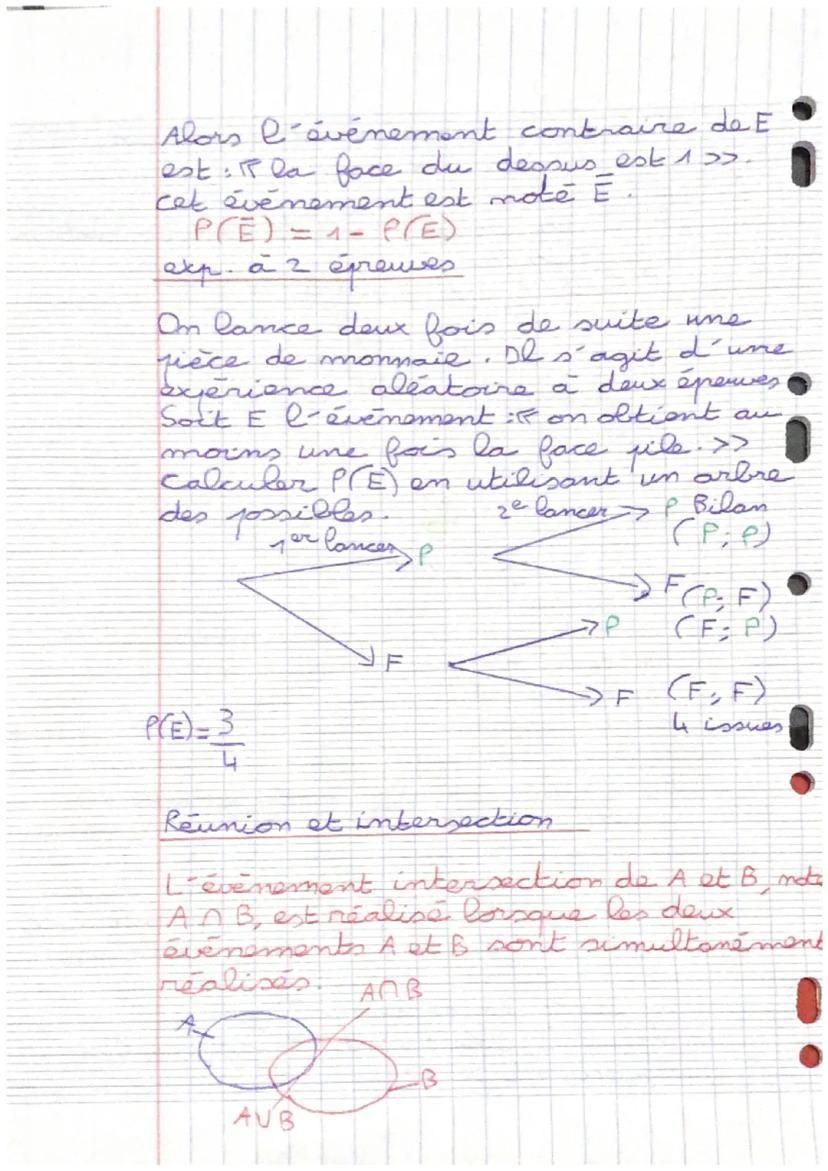 Alors l'événement contraire de E
est : « la face du dessus est 1 >>.
Cet événement est noté Ē.
P(Ē) = 1 - P(E)
exp. à 2 épreuves
On lance deux fois de suite une
pièce de monnaie. Il s'agit d'une
expérience aléatoire à deux épreuves
Soit E l'événement : « on obtient au
moins une fois la face pile. >>
Calculer P(E) en utilisant un arbre
des possibles.
1er lancer P
2e lancer P Bilan
(P; P)
F (P; F)
P (F; P)
F
F (F; F)
4 issues
P(E) = 3/4
Réunion et intersection
L'événement intersection de A et B, noté
A ∩ B, est réalisé lorsque les deux
événements A et B sont simultanément
réalisés.
A∩B
A
B
A∪B